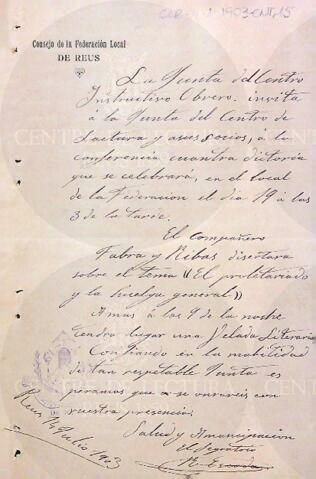 Consejo de la Federación Local
DE REUS
La Junta del Centro
Instructivo Obrero invita
á la Junta del Centro de
Lectura y a sus socios, á la
conferencia
que se celebrará, en el local
de la Federacion el dia 19 á las
3 de la tarde.
El compañero
Fabra y Ribas disertara
sobre el tema "El proletariado
y la huelga general"
A mas á las 9 de la noche
tendra lugar una Velada Literaria
Confiando en la
de tan respetable Junta es
peramos que
vuestra presencia.
Salud y Emancipacion
El Secretario
Reus 14 Julio 1903
CENTRE DE LECTURA